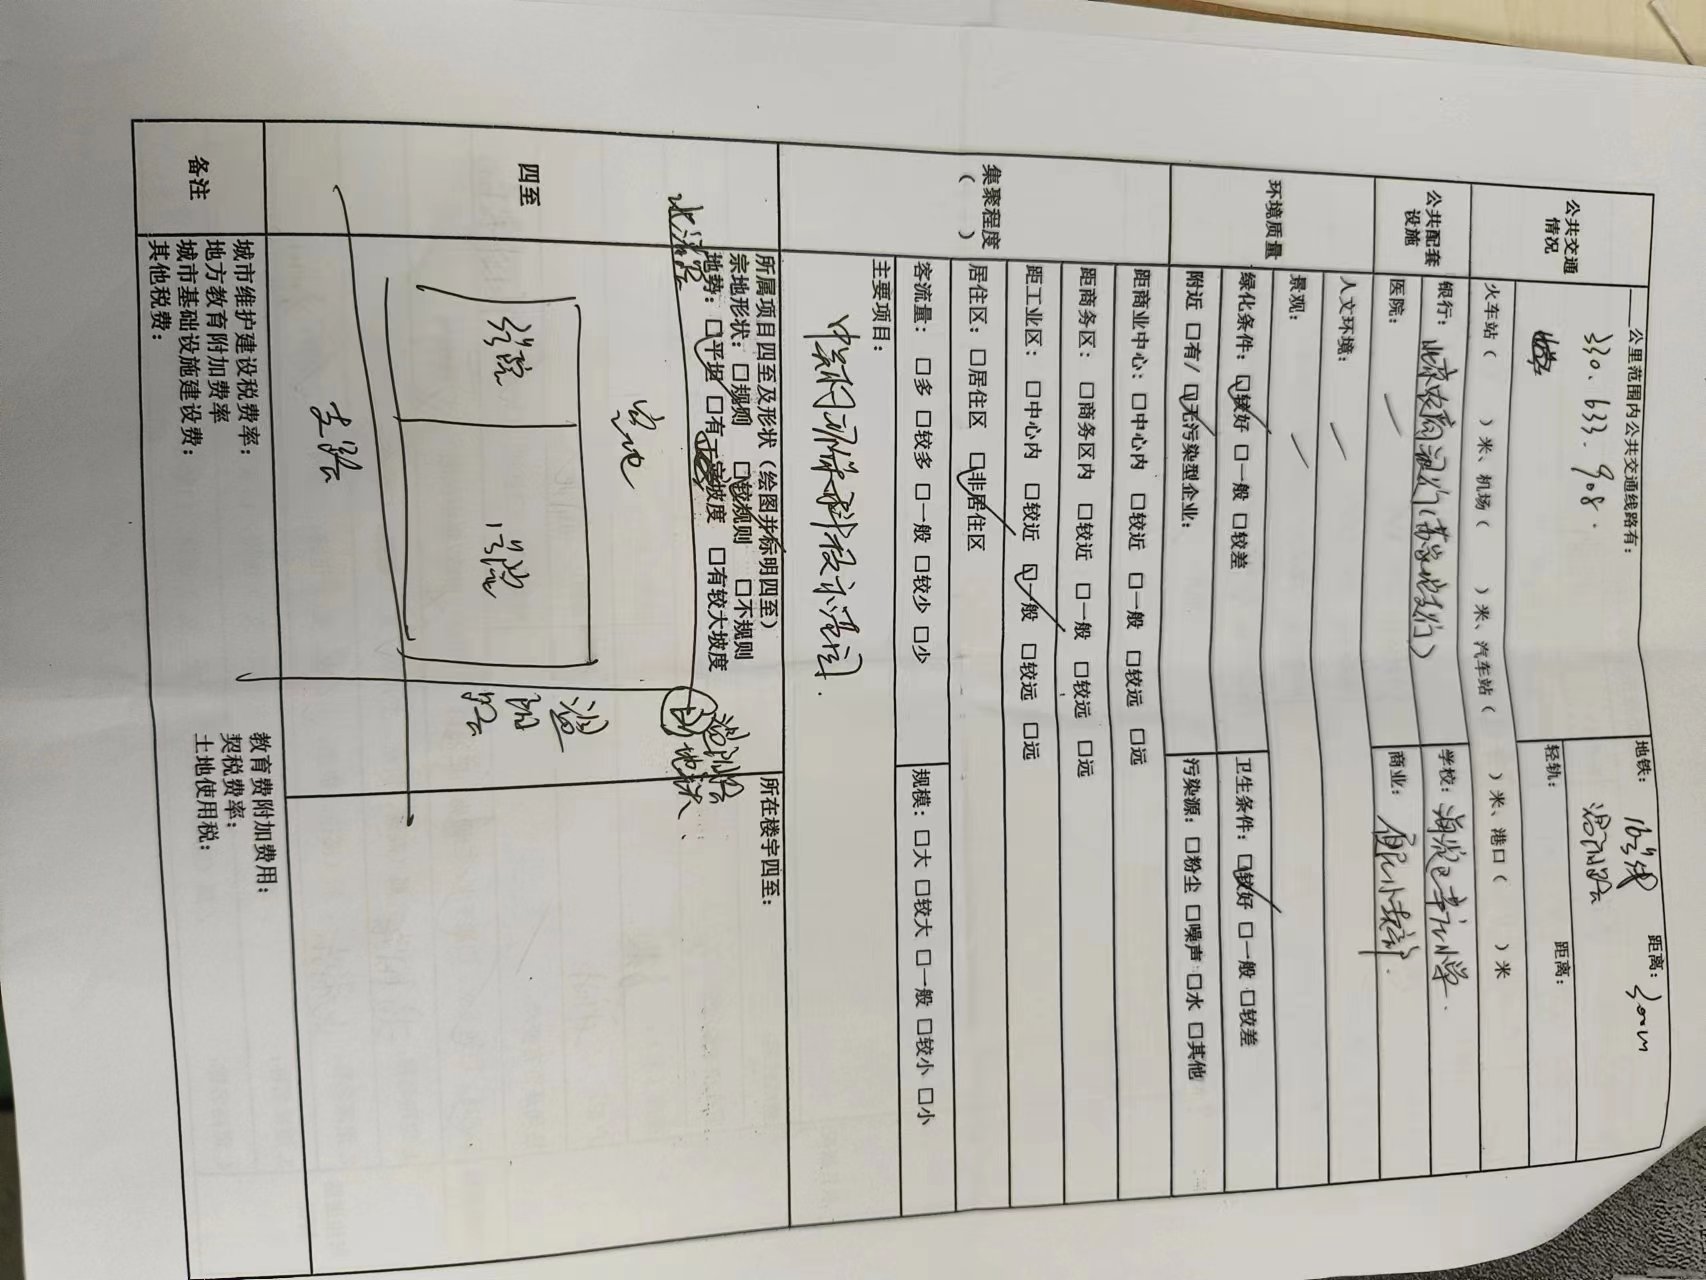 公共交通情况
公里范围内公共交通线路有：
330. 633. 908.
地铁： 16号线 距离： 300m
温阳路
轻轨： 距离：
火车站（ ）米、机场（ ）米、汽车站（ ）米、港口（ ）米
公共配套设施
银行： 北京农商银行（苏家坨支行）
学校： 小学.
医院：
商业：
环境质量
人文环境：
景观：
绿化条件：☑较好 □一般 □较差
卫生条件：☑较好 □一般 □较差
附近 □有/ ☑无污染型企业：
污染源：□粉尘 □噪声 □水 □其他
集聚程度（ ）
距商业中心：□中心内 □较近 □一般 □较远 □远
距商务区：□商务区内 □较近 □一般 □较远 □远
距工业区：□中心内 □较近 ☑一般 □较远 □远
居住区：□居住区 ☑非居住区
客流量：□多 □较多 □一般 □较少 □少
规模：□大 □较大 □一般 □较小 □小
主要项目：
四至
所属项目四至及形状（绘图并标明四至）
所在楼宇四至：
宗地形状：□规则 □较规则 □不规则
地势：☑平坦 □有一定坡度 □有较大坡度
地铁
空地
温阳路
2号院
1号院
土路
备注
城市维护建设税费率：
教育费附加费用：
地方教育附加费率
契税费率：
城市基础设施建设费：
土地使用税：
其他税费：